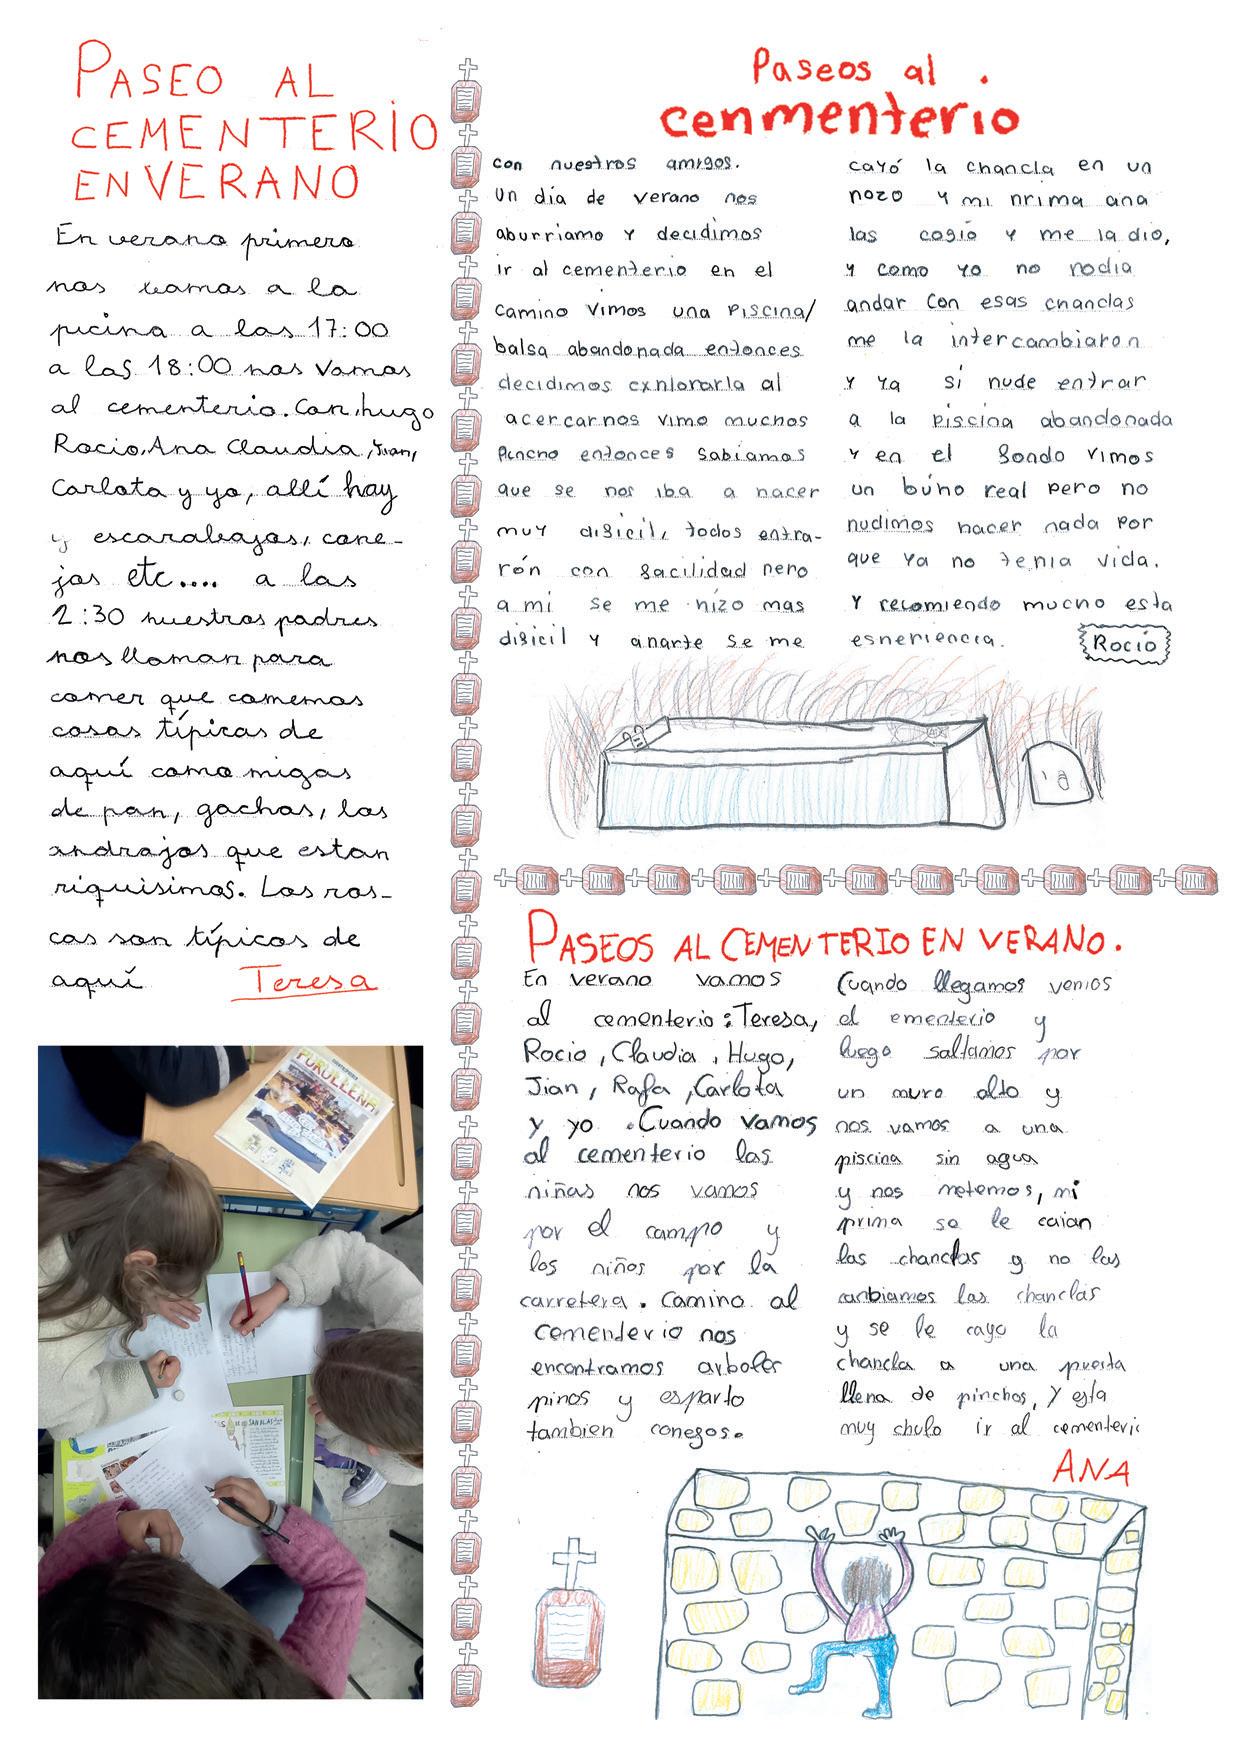 PASEO AL
CEMENTERIO
EN VERANO
En verano primero
nos vamos a la
picina a las 17:00
a las 18:00 nos vamos
al cementerio. Con, hugo
Rocio, Ana Claudia, Juan,
Carlota y yo, allí hay
y escarabajos, cone-
jos etc.... a las
2:30 nuestros padres
nos llaman para
comer que comemos
cosas típicas de
aquí como migas
de pan, gachas, los
andrajos que estan
riquisimos. Las ros-
cas son típicos de
aquí
Teresa
Paseos al .
cenmenterio
con nuestros amigos.
Un día de verano nos
aburriamo y decidimos
ir al cementerio en el
camino vimos una piscina/
balsa abandonada entonces
decidimos explorarla al
acercarnos vimo muchos
pincho entonces sabíamos
que se nos iba a hacer
muy dificil, todos entra-
rón con facilidad pero
a mi se me hizo mas
dificil y aparte se me
cayó la chancla en un
pozo y mi prima ana
las cogió y me la dio,
y como yo no podia
andar con esas chanclas
me la intercambiaron
y ya sí pude entrar
a la piscina abandonada
y en el fondo vimos
un búho real pero no
pudimos hacer nada por
que ya no tenia vida.
Y recomiendo mucho esta
experiencia.
Rocío
PASEOS AL CEMENTERIO EN VERANO.
En verano vamos
al cementerio: Teresa,
Rocio, Claudia, Hugo,
Jian, Rafa, Carlota
y yo. Cuando vamos
al cementerio las
niñas nos vamos
por el campo y
los niños por la
carretera. Camino al
cementerio nos
encontramos arboles
pinos y esparto
tambien conegos.
Cuando llegamos vemos
el ementerio y
luego saltamos por
un muro alto y
nos vamos a una
piscina sin agua
y nos metemos, mi
prima se le caian
las chanclas y no las
canbiamos las chanclas
y se le cayo la
chancla a una puerta
llena de pinchos, Y esta
muy chulo ir al cementerio
ANA
PURULLENA